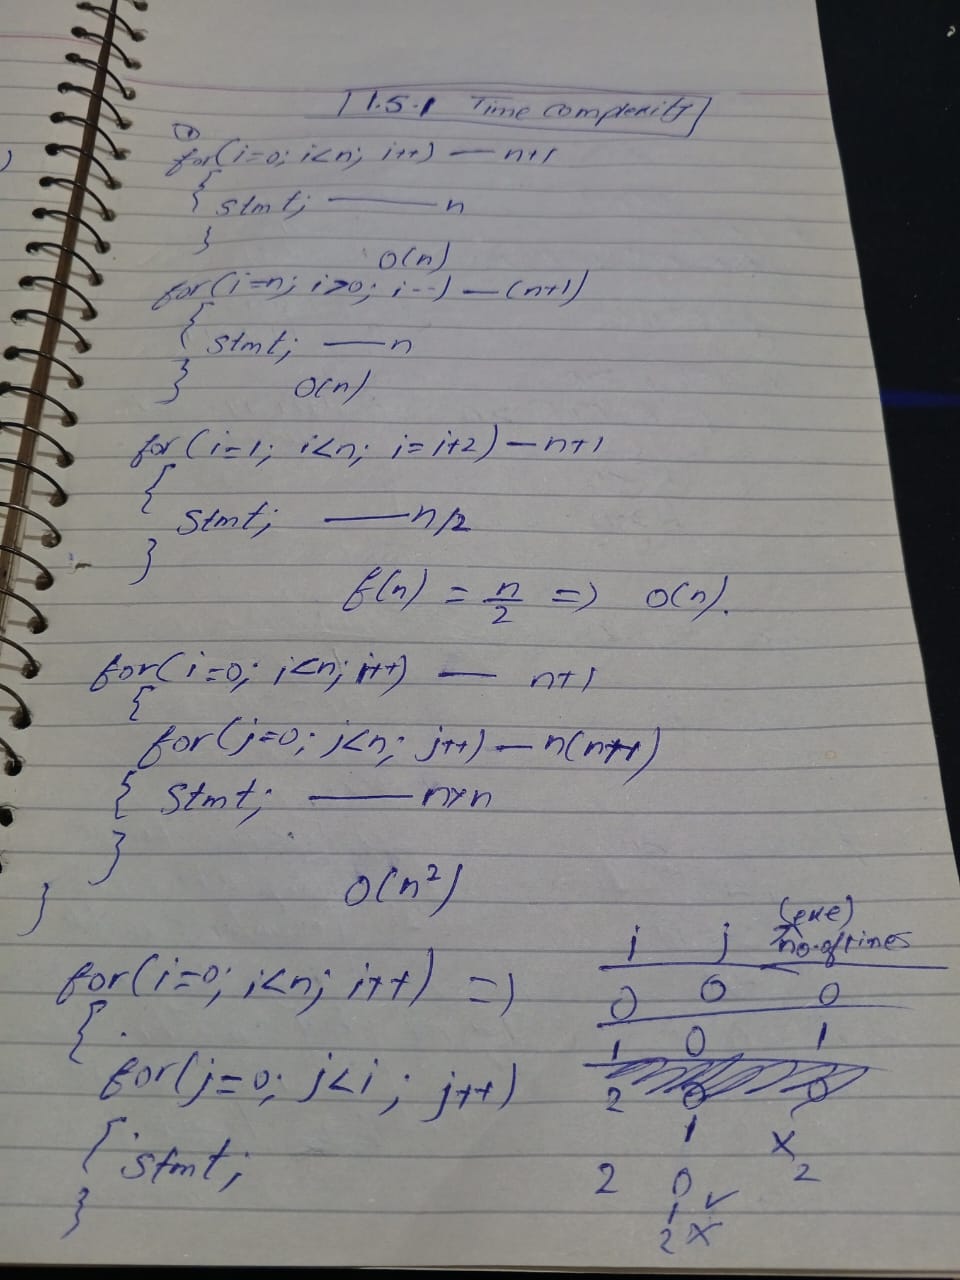 1.5.1 Time complexity
①
for(i=0; i<n; i++) — n+1
{
stmt; — n
}
O(n)
for(i=n; i>0; i--) — (n+1)
{
stmt; — n
}
O(n)
for(i=1; i<n; i=i+2) — n+1
{
stmt; — n/2
}
f(n) = n/2 => O(n).
for(i=0; i<n; i++) — n+1
{
for(j=0; j<n; j++) — n(n+1)
{ stmt; — n×n
}
O(n²)
}
for(i=0; i<n; i++) =>
{
for(j=0; j<i; j++)
{ stmt;
}
i j (exe) no. of times
0 0 0
1 0 1
2 0
1 x
2 0 ✓ 2
1
2 x